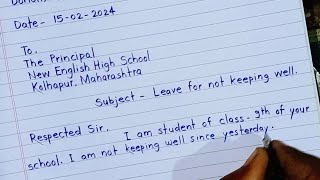 Date- 15-02-2024
To,
The Principal
New English High School
Kolhapur, Maharashtra
Subject - Leave for not keeping well.
Respected Sir,
I am student of class- 9th of your
school. I am not keeping well since yesterday.